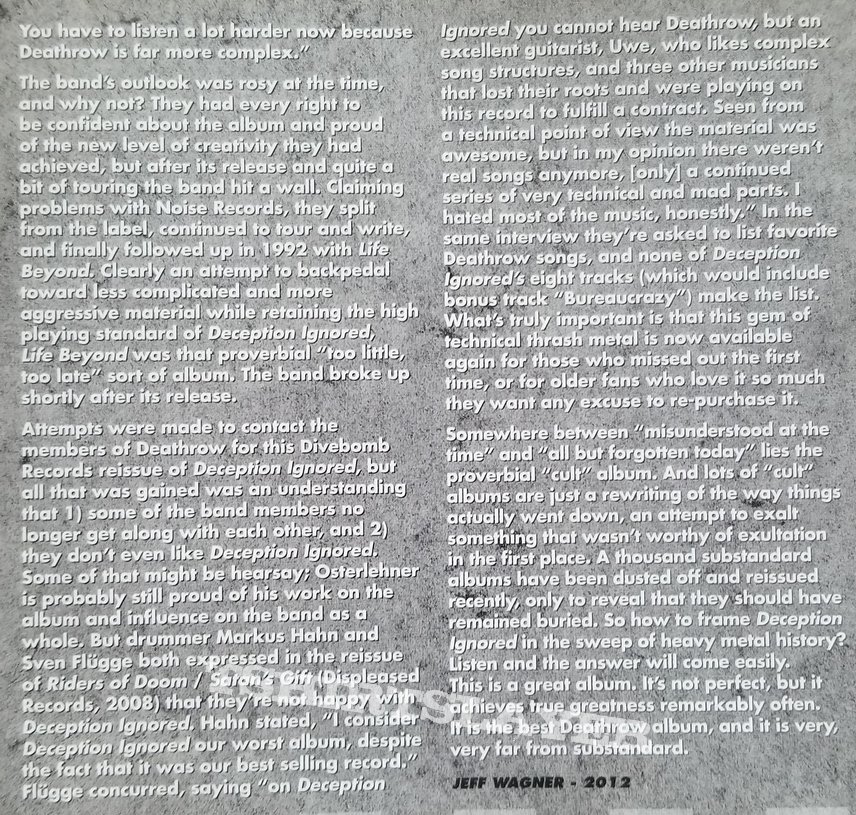 You have to listen a lot harder now because
Deathrow is far more complex."
The band's outlook was rosy at the time,
and why not? They had every right to
be confident about the album and proud
of the new level of creativity they had
achieved, but after its release and quite a
bit of touring the band hit a wall. Claiming
problems with Noise Records, they split
from the label, continued to tour and write,
and finally followed up in 1992 with Life
Beyond. Clearly an attempt to backpedal
toward less complicated and more
aggressive material while retaining the high
playing standard of Deception Ignored,
Life Beyond was that proverbial "too little,
too late" sort of album. The band broke up
shortly after its release.
Attempts were made to contact the
members of Deathrow for this Divebomb
Records reissue of Deception Ignored, but
all that was gained was an understanding
that 1) some of the band members no
longer get along with each other, and 2)
they don't even like Deception Ignored.
Some of that might be hearsay; Osterlehner
is probably still proud of his work on the
album and influence on the band as a
whole. But drummer Markus Hahn and
Sven Flügge both expressed in the reissue
of Riders of Doom / Satan's Gift (Displeased
Records, 2008) that they're not happy with
Deception Ignored. Hahn stated, "I consider
Deception Ignored our worst album, despite
the fact that it was our best selling record."
Flügge concurred, saying "on Deception
Ignored you cannot hear Deathrow, but an
excellent guitarist, Uwe, who likes complex
song structures, and three other musicians
that lost their roots and were playing on
this record to fulfill a contract. Seen from
a technical point of view the material was
awesome, but in my opinion there weren't
real songs anymore, [only] a continued
series of very technical and mad parts. I
hated most of the music, honestly." In the
same interview they're asked to list favorite
Deathrow songs, and none of Deception
Ignored's eight tracks (which would include
bonus track "Bureaucrazy") make the list.
What's truly important is that this gem of
technical thrash metal is now available
again for those who missed out the first
time, or for older fans who love it so much
they want any excuse to re-purchase it.
Somewhere between "misunderstood at the
time" and "all but forgotten today" lies the
proverbial "cult" album. And lots of "cult"
albums are just a rewriting of the way things
actually went down, an attempt to exalt
something that wasn't worthy of exultation
in the first place. A thousand substandard
albums have been dusted off and reissued
recently, only to reveal that they should have
remained buried. So how to frame Deception
Ignored in the sweep of heavy metal history?
Listen and the answer will come easily.
This is a great album. It's not perfect, but it
achieves true greatness remarkably often.
It is the best Deathrow album, and it is very,
very far from substandard.
JEFF WAGNER - 2012